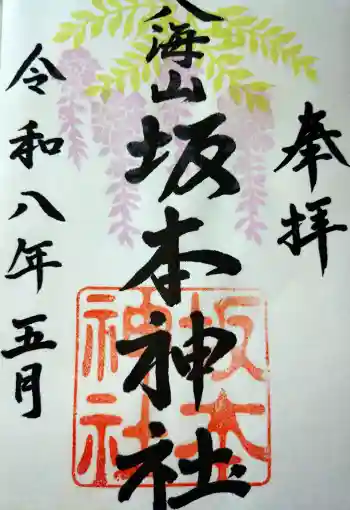 奉拝
八海山
坂本神社
令和八年五月
坂本
神社